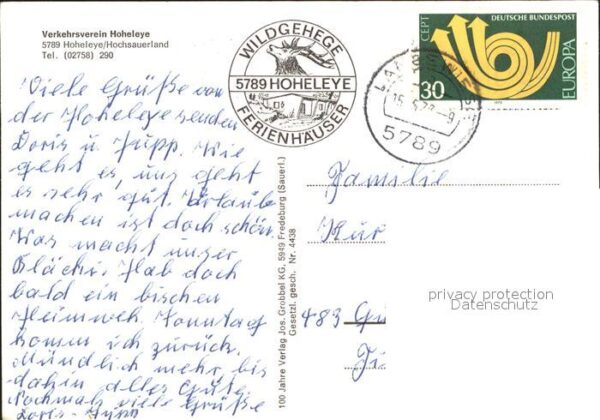 Verkehrsverein Hoheleye
5789 Hoheleye/Hochsauerland
Tel. (02758) 290
WILDGEHEGE
5789 HOHELEYE
FERIENHÄUSER
CEPT
DEUTSCHE BUNDESPOST
30
EUROPA
5789
Viele Grüße von
der Hoheleye senden
Doris u. Jupp. Wie
geht es, uns geht
es sehr gut. Urlaub
machen ist doch schön.
Was macht unser
Hab doch
bald ein bischen
Heimweh. Sonntag
komm ich zurück.
Mündlich mehr, bis
dahin alles Gute.
Nochmals viele Grüße
Doris - Jupp
100 Jahre Verlag Jos. Grobbel KG, 5949 Fredeburg (Sauerl.)
Gesetzl. gesch. Nr. 4438
Familie
Kur
483 Gü
privacy protection
Datenschutz